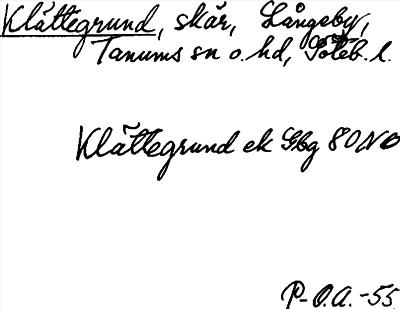 Klättegrund, skär, Långeby,
Tanums sn o. hd, Göteb. l.
Klättegrund ek Gbg 80 NO
P-O.A. -55